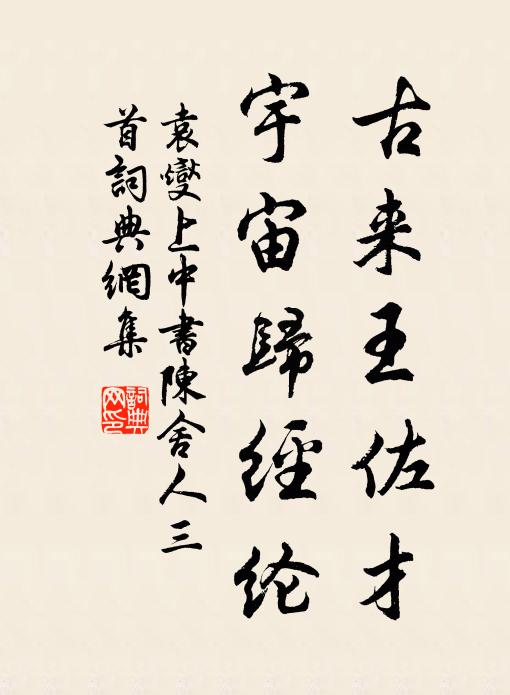 古来王佐才
宇宙歸經纶
袁燮上中書陳舍人三
首詞典網集
詞典
网印